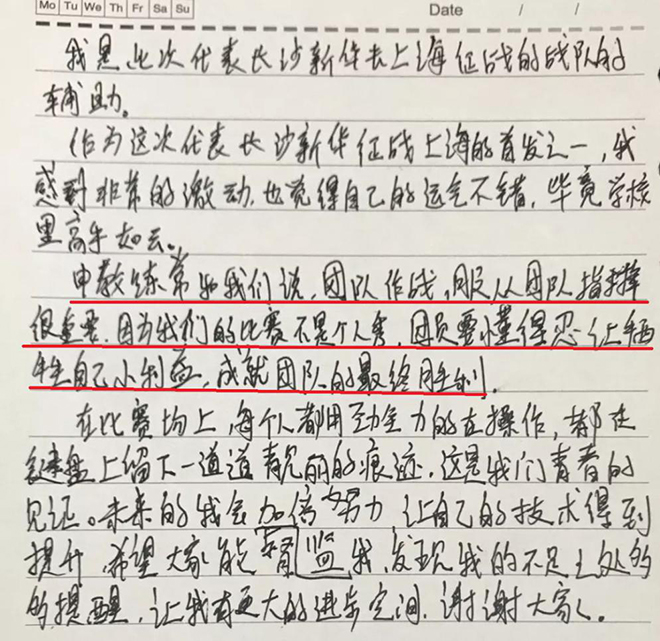 Mo Tu We Th Fr Sa Su Date / /
我是此次代表长沙新华去上海征战的战队的
辅助.
作为这次代表长沙新华征战上海的首发之一,我
感到非常的激动,也觉得自己的运气不错,毕竟学校
里高手如云.
申教练常和我们说,团队作战,服从团队指挥
很重要,因为我们的比赛不是个人秀,团员要懂得忍让牺
牲自己小利益,成就团队的最终胜利.
在比赛场上,每个人都用劲全力的在操作,都在
键盘上留下一道道靓丽的痕迹,这是我们青春的
见证。未来的我会加倍努力,让自己的技术得到
提升,希望大家能督监我,发现我的不足之处的
的提醒,让我有更大的进步空间,谢谢大家.